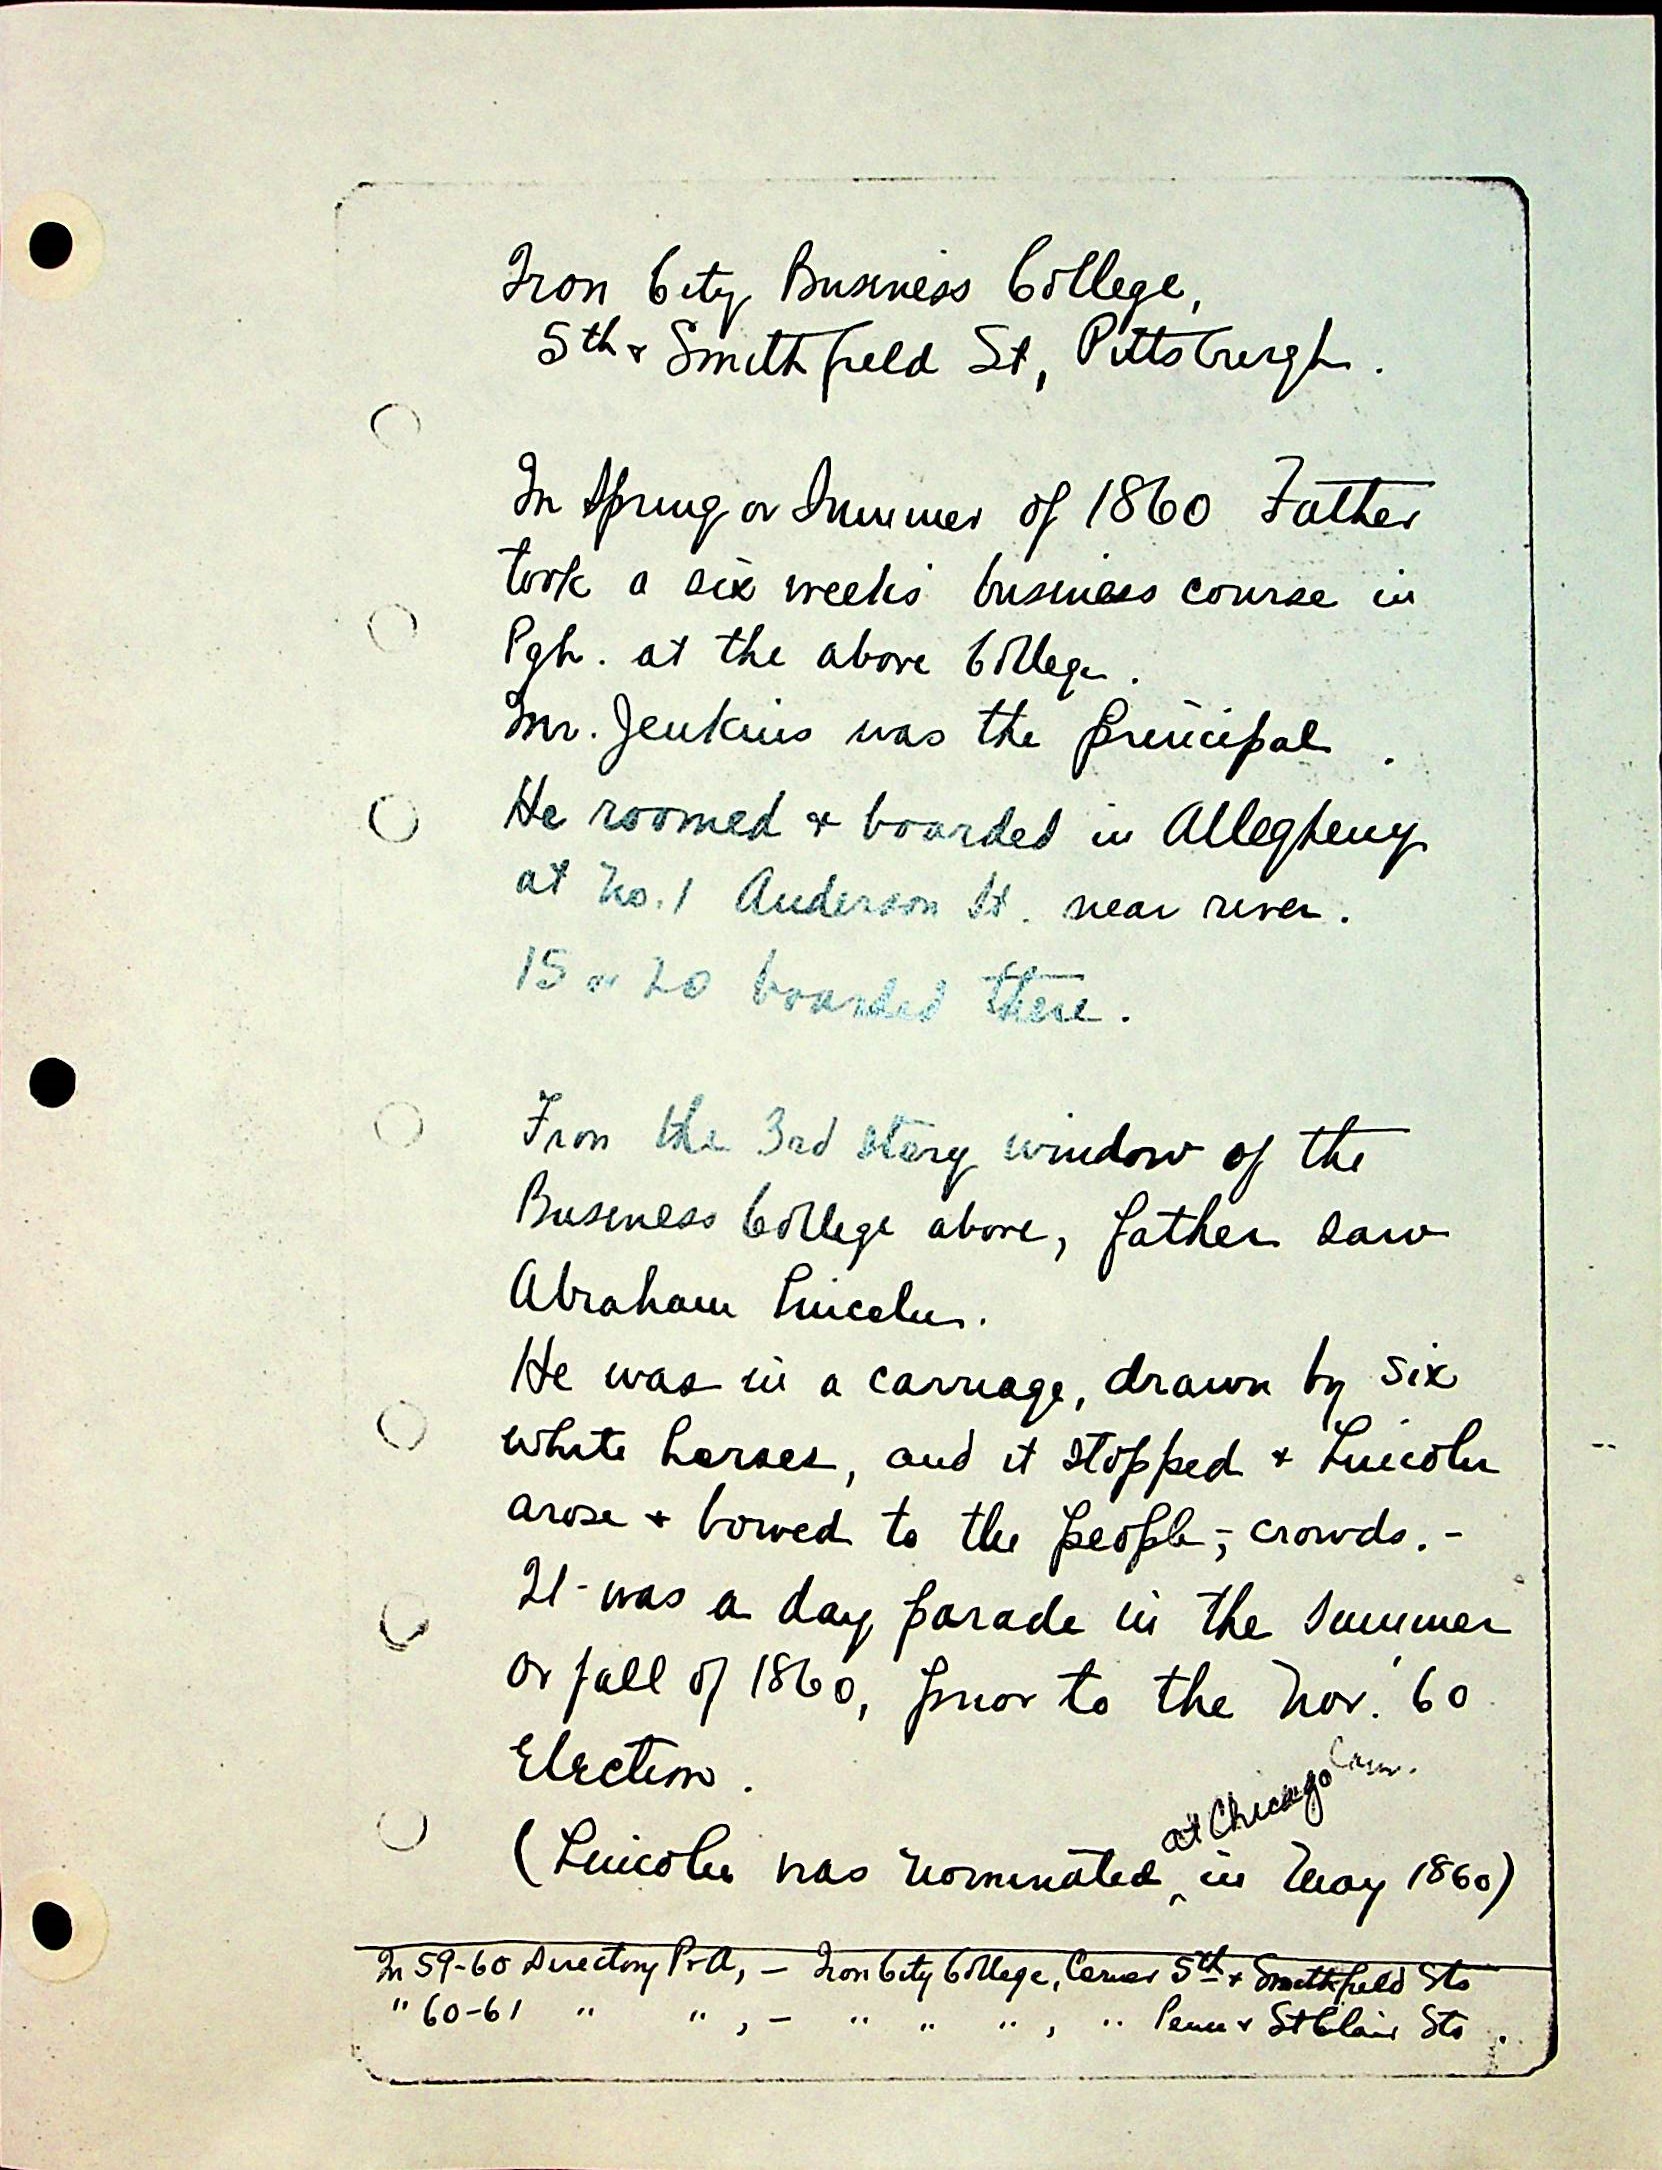 Iron City Business College,
5th & Smithfield St, Pittsburgh.
In Spring or Summer of 1860 Father
took a six weeks' business course in
Pgh. at the above College.
Mr. Jenkins was the principal.
He roomed & boarded in Allegheny
at No. 1 Anderson St. near river.
15 or 20 boarded there.
From the 3rd story window of the
Business College above, father saw
Abraham Lincoln.
He was in a carriage, drawn by six
white horses, and it stopped & Lincoln
arose & bowed to the people; - crowds. -
It was a day parade in the summer
or fall of 1860, prior to the Nov. '60
Election.
at Chicago Conv.
(Lincoln was nominated ^ in May 1860)
In 59-60 Directory P&A, - Iron City College, Corner 5th & Smithfield Sts
" 60-61 " " , - " " " , " Penn & St Clair Sts.